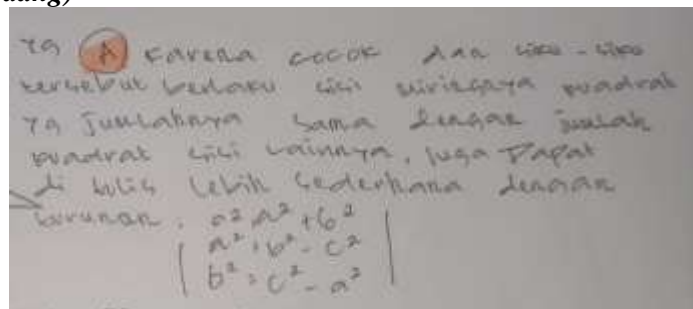 yg A karena cocok dan siku-siku
tersebut berlaku sisi miringnya kuadrat
yg jumlahnya sama dengan jumlah
kuadrat sisi lainnya, juga Dapat
di tulis lebih sederhana dengan
turunan. a² a² + b²
a² = b² - c²
b² = c² - a²